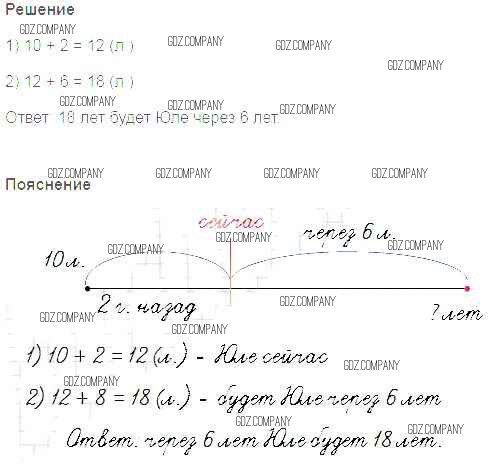 Решение
GDZ.COMPANY
1) 10 + 2 = 12 (л.)
GDZ.COMPANY GDZ.COMPANY
GDZ.COMPANY
2) 12 + 6 = 18 (л.)
GDZ.COMPANY GDZ.COMPANY GDZ.COMPANY
Ответ 18 лет будет Юле через 6 лет.
GDZ.COMPANY GDZ.COMPANY GDZ.COMPANY GDZ.COMPANY
Пояснение
сейчас
GDZ.COMPANY
через 6 л.
GDZ.COMPANY GDZ.COMPANY
10 л.
2 г. назад
GDZ.COMPANY
? лет
GDZ.COMPANY
GDZ.COMPANY
1) 10 + 2 = 12 (л.) - Юле сейчас
GDZ.COMPANY
GDZ.COMPANY
2) 12 + 8 = 18 (л.) - будет Юле через 6 лет
GDZ.COMPANY
GDZ.COMPANY
Ответ. через 6 лет Юле будет 18 лет.